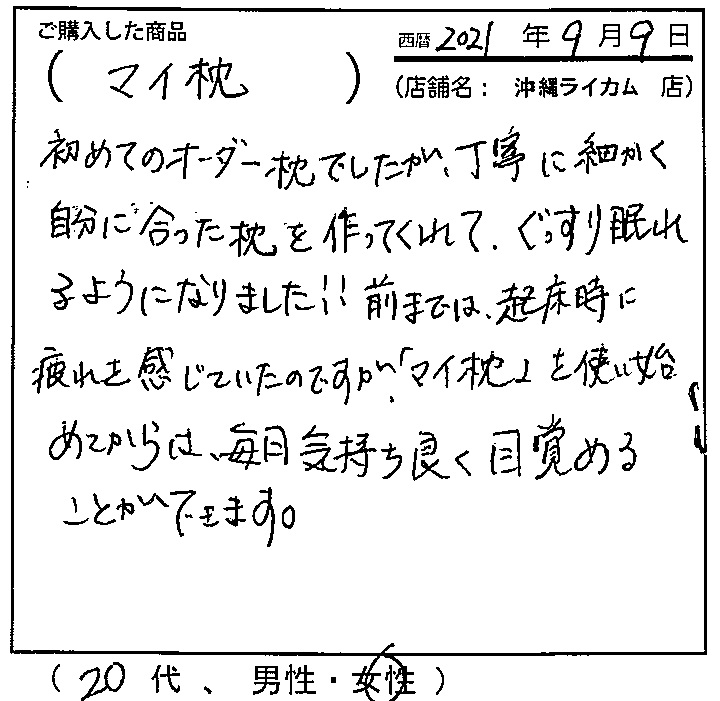 ご購入した商品
西暦 2021 年 9 月 9 日
( マイ枕 )
(店舗名： 沖縄ライカム 店)
初めてのオーダー枕でしたが、丁寧に細かく
自分に合った枕を作ってくれて、ぐっすり眠れ
るようになりました!! 前までは、起床時に
疲れを感じていたのですが、「マイ枕」を使い始
めてからは、毎日気持ち良く目覚める
ことができます。
( 20 代 、 男性・女性 )